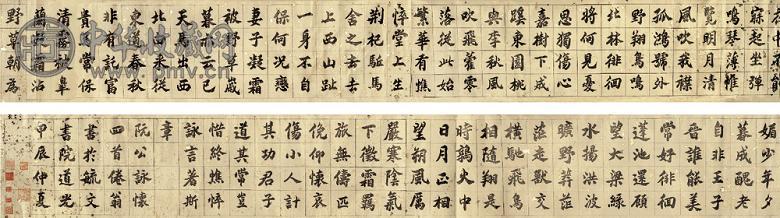 寐起坐彈
鳴琴薄帷
覽明月清
風吹我襟
孤鴻號外
野翔鳥鳴
北林徘徊
將何見憂
思獨傷心
嘉樹下成
蹊東園桃
與李秋風
吹飛藿零
落從此始
繁華有憔
悴堂上生
荊杞驅馬
舍之去去
上西山趾
一身不自
保何況戀
妻子凝霜
被野草歲
暮亦云已
天馬出西
北由來從
東道春秋
非有託富
貴常保
清露被皋
蘭凝霜沾
野草朝為
媚少年夕
暮成醜老
自非王子
晉誰能美
常好徘徊
蓬池還顧
望大梁綠
水揚洪波
曠野莽茫
茫走獸交
橫馳飛鳥
相隨翔是
時鶉火中
日月正相
望朔風厲
嚴寒陰氣
下微霜羈
旅無儔匹
俛仰懷哀
傷小人計
其功君子
道其常豈
惜終憔悴
詠言著斯
章
阮公詠懷
四首倦翁
書於毓文
書院道光
甲辰仲夏